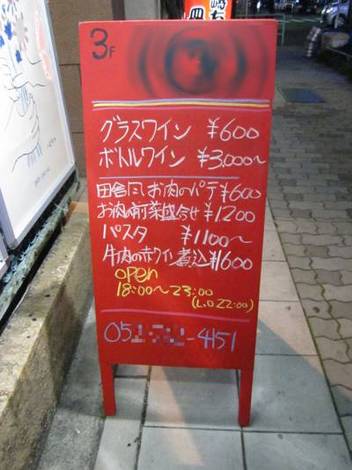 3F
グラスワイン ¥600
ボトルワイン ¥3,000〜
田舎にしお肉のパテ ¥600
お肉の前菜盛合せ ¥1,200
パスタ ¥1100〜
牛肉の赤ワイン煮込 ¥1600
open
18:00〜23:00
(L.O 22:00)
-4151